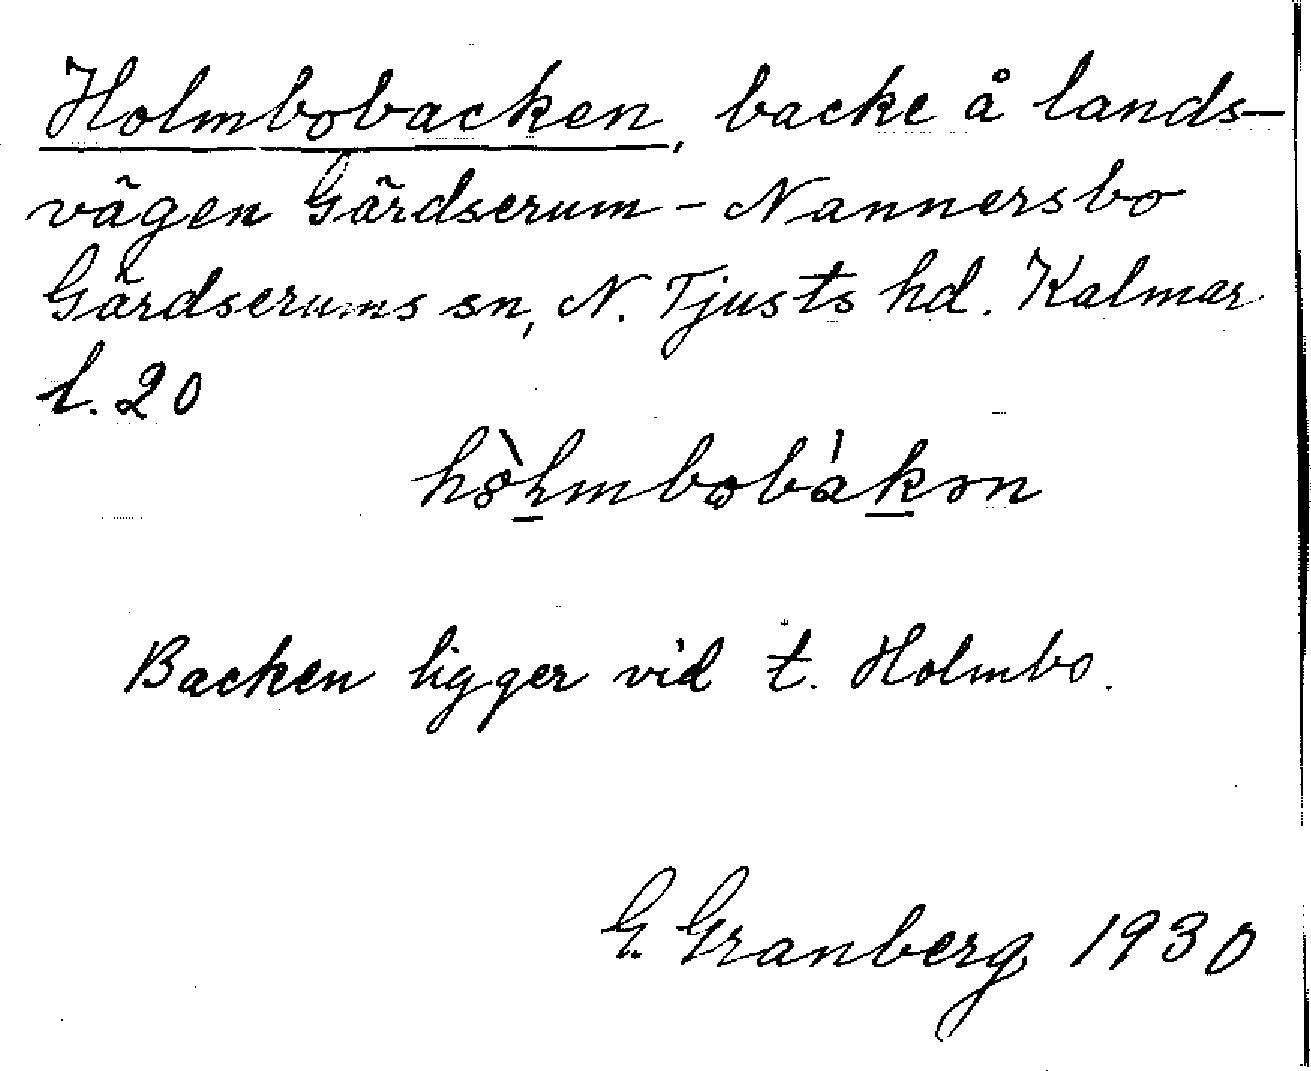 Holmbobacken, backe å lands-
vägen Gärdserum - Nannersbo
Gärdserums sn, N. Tjusts hd. Kalmar
l. 20
Backen ligger vid t. Holmbo.
G. Granberg 1930